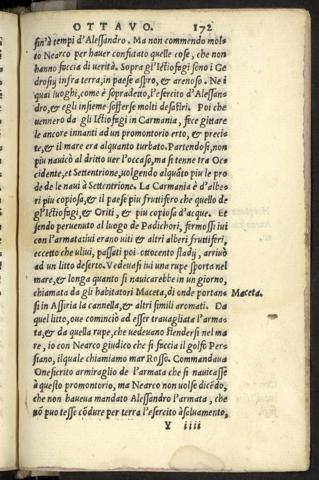 OTTAVO. 172
sin'à tempi d'Alessandro. Ma non commendo mol-
to Nearco per hauer confutato quelle cose, che non
hanno faccia di uerità. Sopra gl'Ictiofagi sono i Ge
drosij infra terra, in paese aspro, & arenoso. Ne i
quai luoghi, come è sopradetto, l'esercito d'Alessan-
dro, & egli insieme sofferse molti desastri. Poi che
uennero da gli Ictiofagi in Carmania, fece gittare
le ancore innanti ad un promontorio erto, & preci-
te, & il mare era alquanto turbato. Partendosi, non
piu nauicò al dritto uer l'occaso, ma si tenne tra Oc
cidente, et Settentrione, uolgendo alquāto piu le pro
de de le naui à Settentrione. La Carmania è d'albe-
ri piu copiosa, & il paese piu fruttifero che quello de
gl'Ictiofagi, & Oriti, & piu copioso d'acque. Et es
sendo peruenuto al luogo de Padichori, fermossi iui
con l'armata: iui erano uiti & altri alberi fruttiferi,
eccetto che uliui, passati poi ottocento stadij, arriuò
ad un lito deserto. Vedeuasi iui una rupe sporta nel
mare, & longa quanto si nauicarebbe in un giorno,
chiamata da gli habitatori Maceta, di onde portans
Maceta.
si in Assiria la cannella, & altri simili aromati. Da
quel litto, oue cominciò ad esser trauagliata l'arma-
ta, & da quella rupe, che uedeuano stendersi nel ma-
re, io con Nearco giudico che si faccia il golfo Per-
siano, il quale chiamiamo mar Rosso. Commandaua
Oneficrito armiraglio de l'armata che si nauicasse
à questo promontorio, ma Nearco non uolse dicēdo,
che non haueua mandato Alessandro l'armata, che
nō puotesse cōdure per terra l'esercito à saluamento,
Y iiii